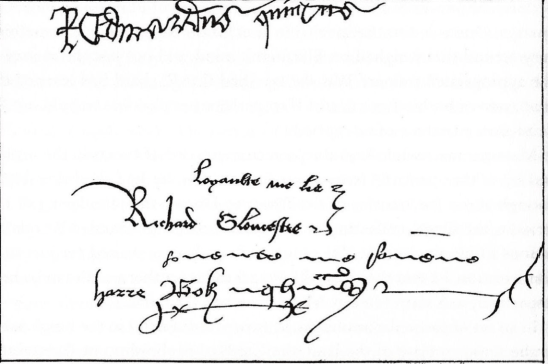 R Edwardus quintus
loyaulte me lie
Richard Gloucestre
souente me souene
harre Bokyngham